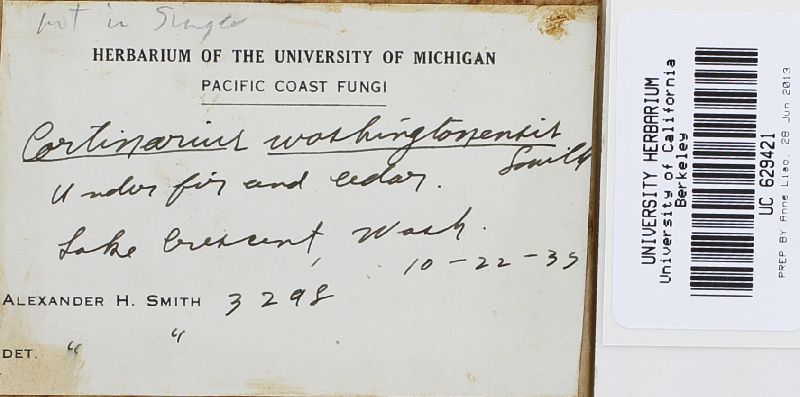 not in Singer
HERBARIUM OF THE UNIVERSITY OF MICHIGAN
PACIFIC COAST FUNGI
Cortinarius washingtonensis
Smith
Under fir and cedar.
Lake Crescent, Wash.
10-22-35
ALEXANDER H. SMITH 3298
DET. " "
UNIVERSITY HERBARIUM
University of California
Berkeley
UC 629421
PREP BY Anne Liao, 28 Jun 2013